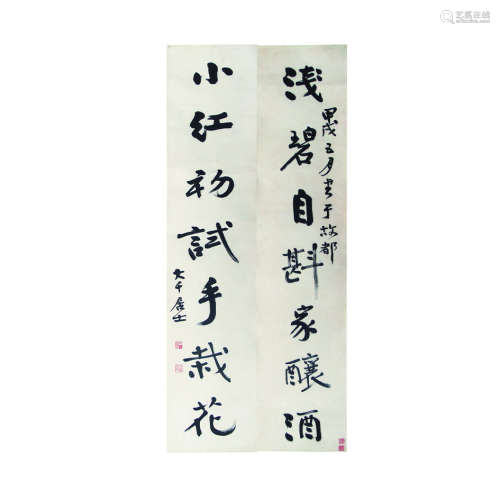 浅碧自斟家釀酒
甲戌五月書于故都
小红初試手栽花
大千居士
艺狐在线